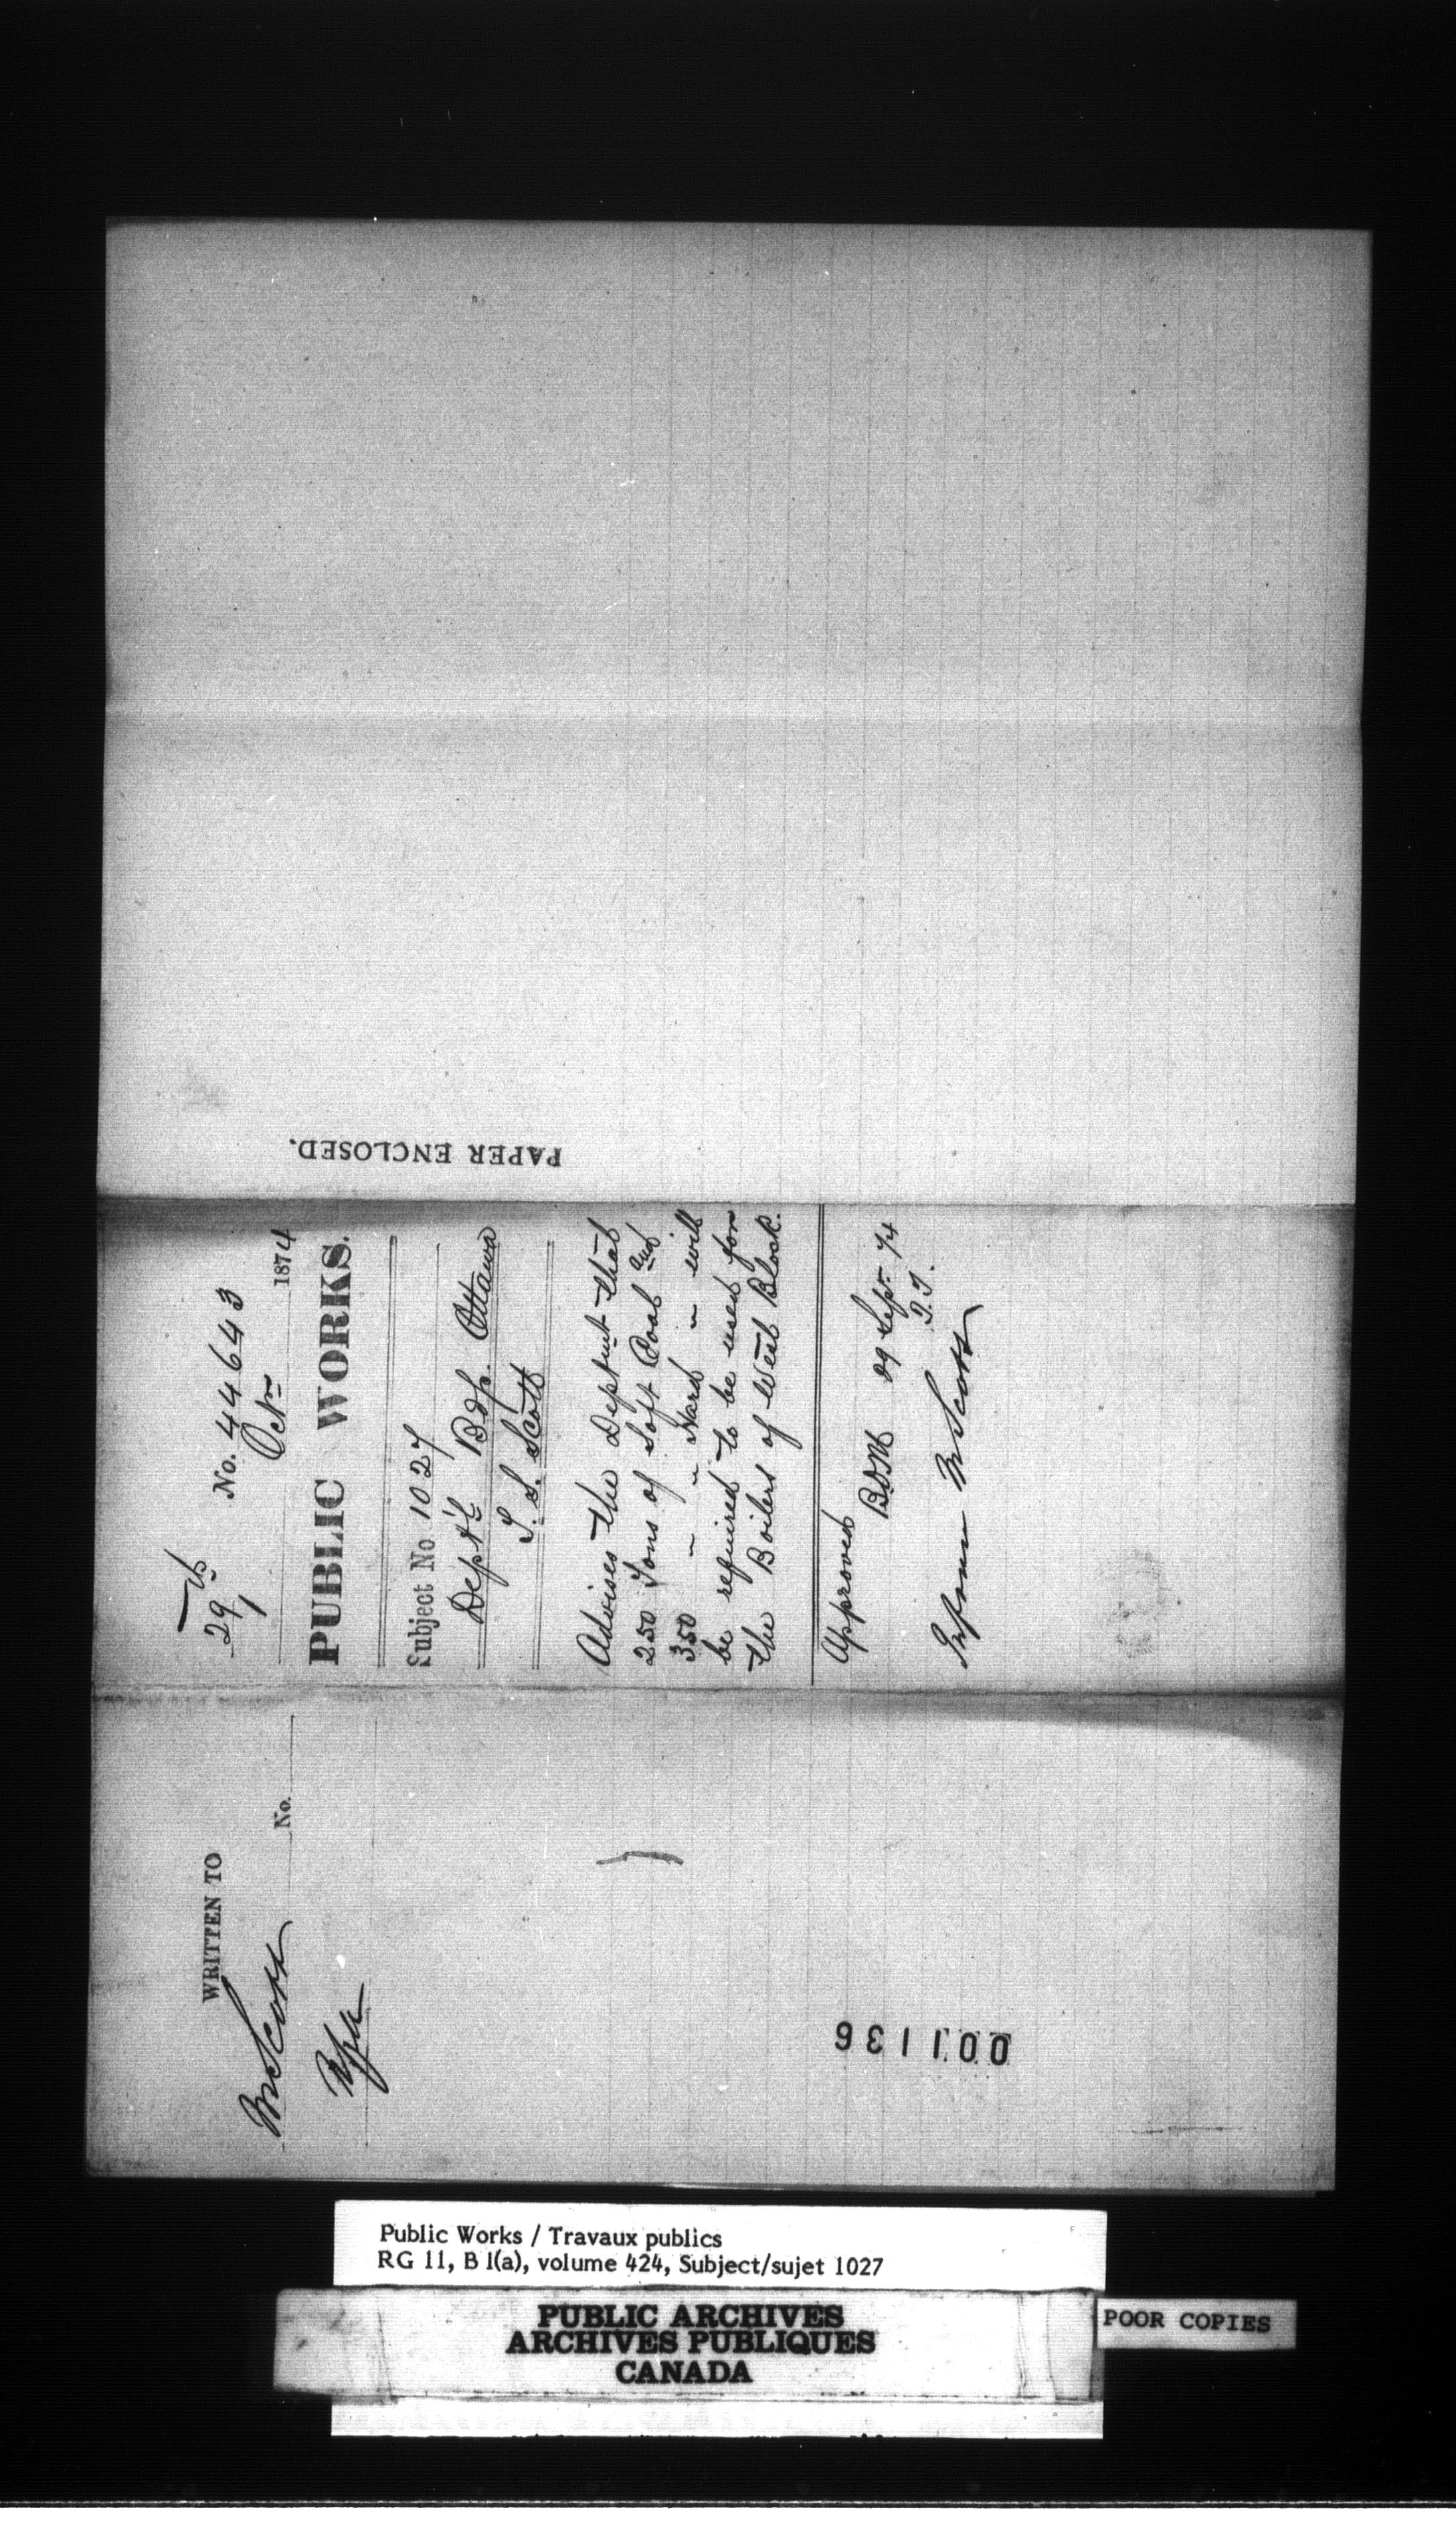 PAPER ENCLOSED.
29
No. 44643
Octr 1874
PUBLIC WORKS.
Subject No. 1027
Dept'l Bdgs. Ottawa
T. S. Scott
Advises the Deptmt that
250 Tons of Soft Coal and
350 " " Hard " will
be required to be used for
the Boilers of West Block.
Approved
29 Sepr 74
Inform Mr Scott
WRITTEN TO
Mr Scott No.
001136
Public Works / Travaux publics
RG 11, B 1(a), volume 424, Subject/sujet 1027
PUBLIC ARCHIVES
ARCHIVES PUBLIQUES
CANADA
POOR COPIES